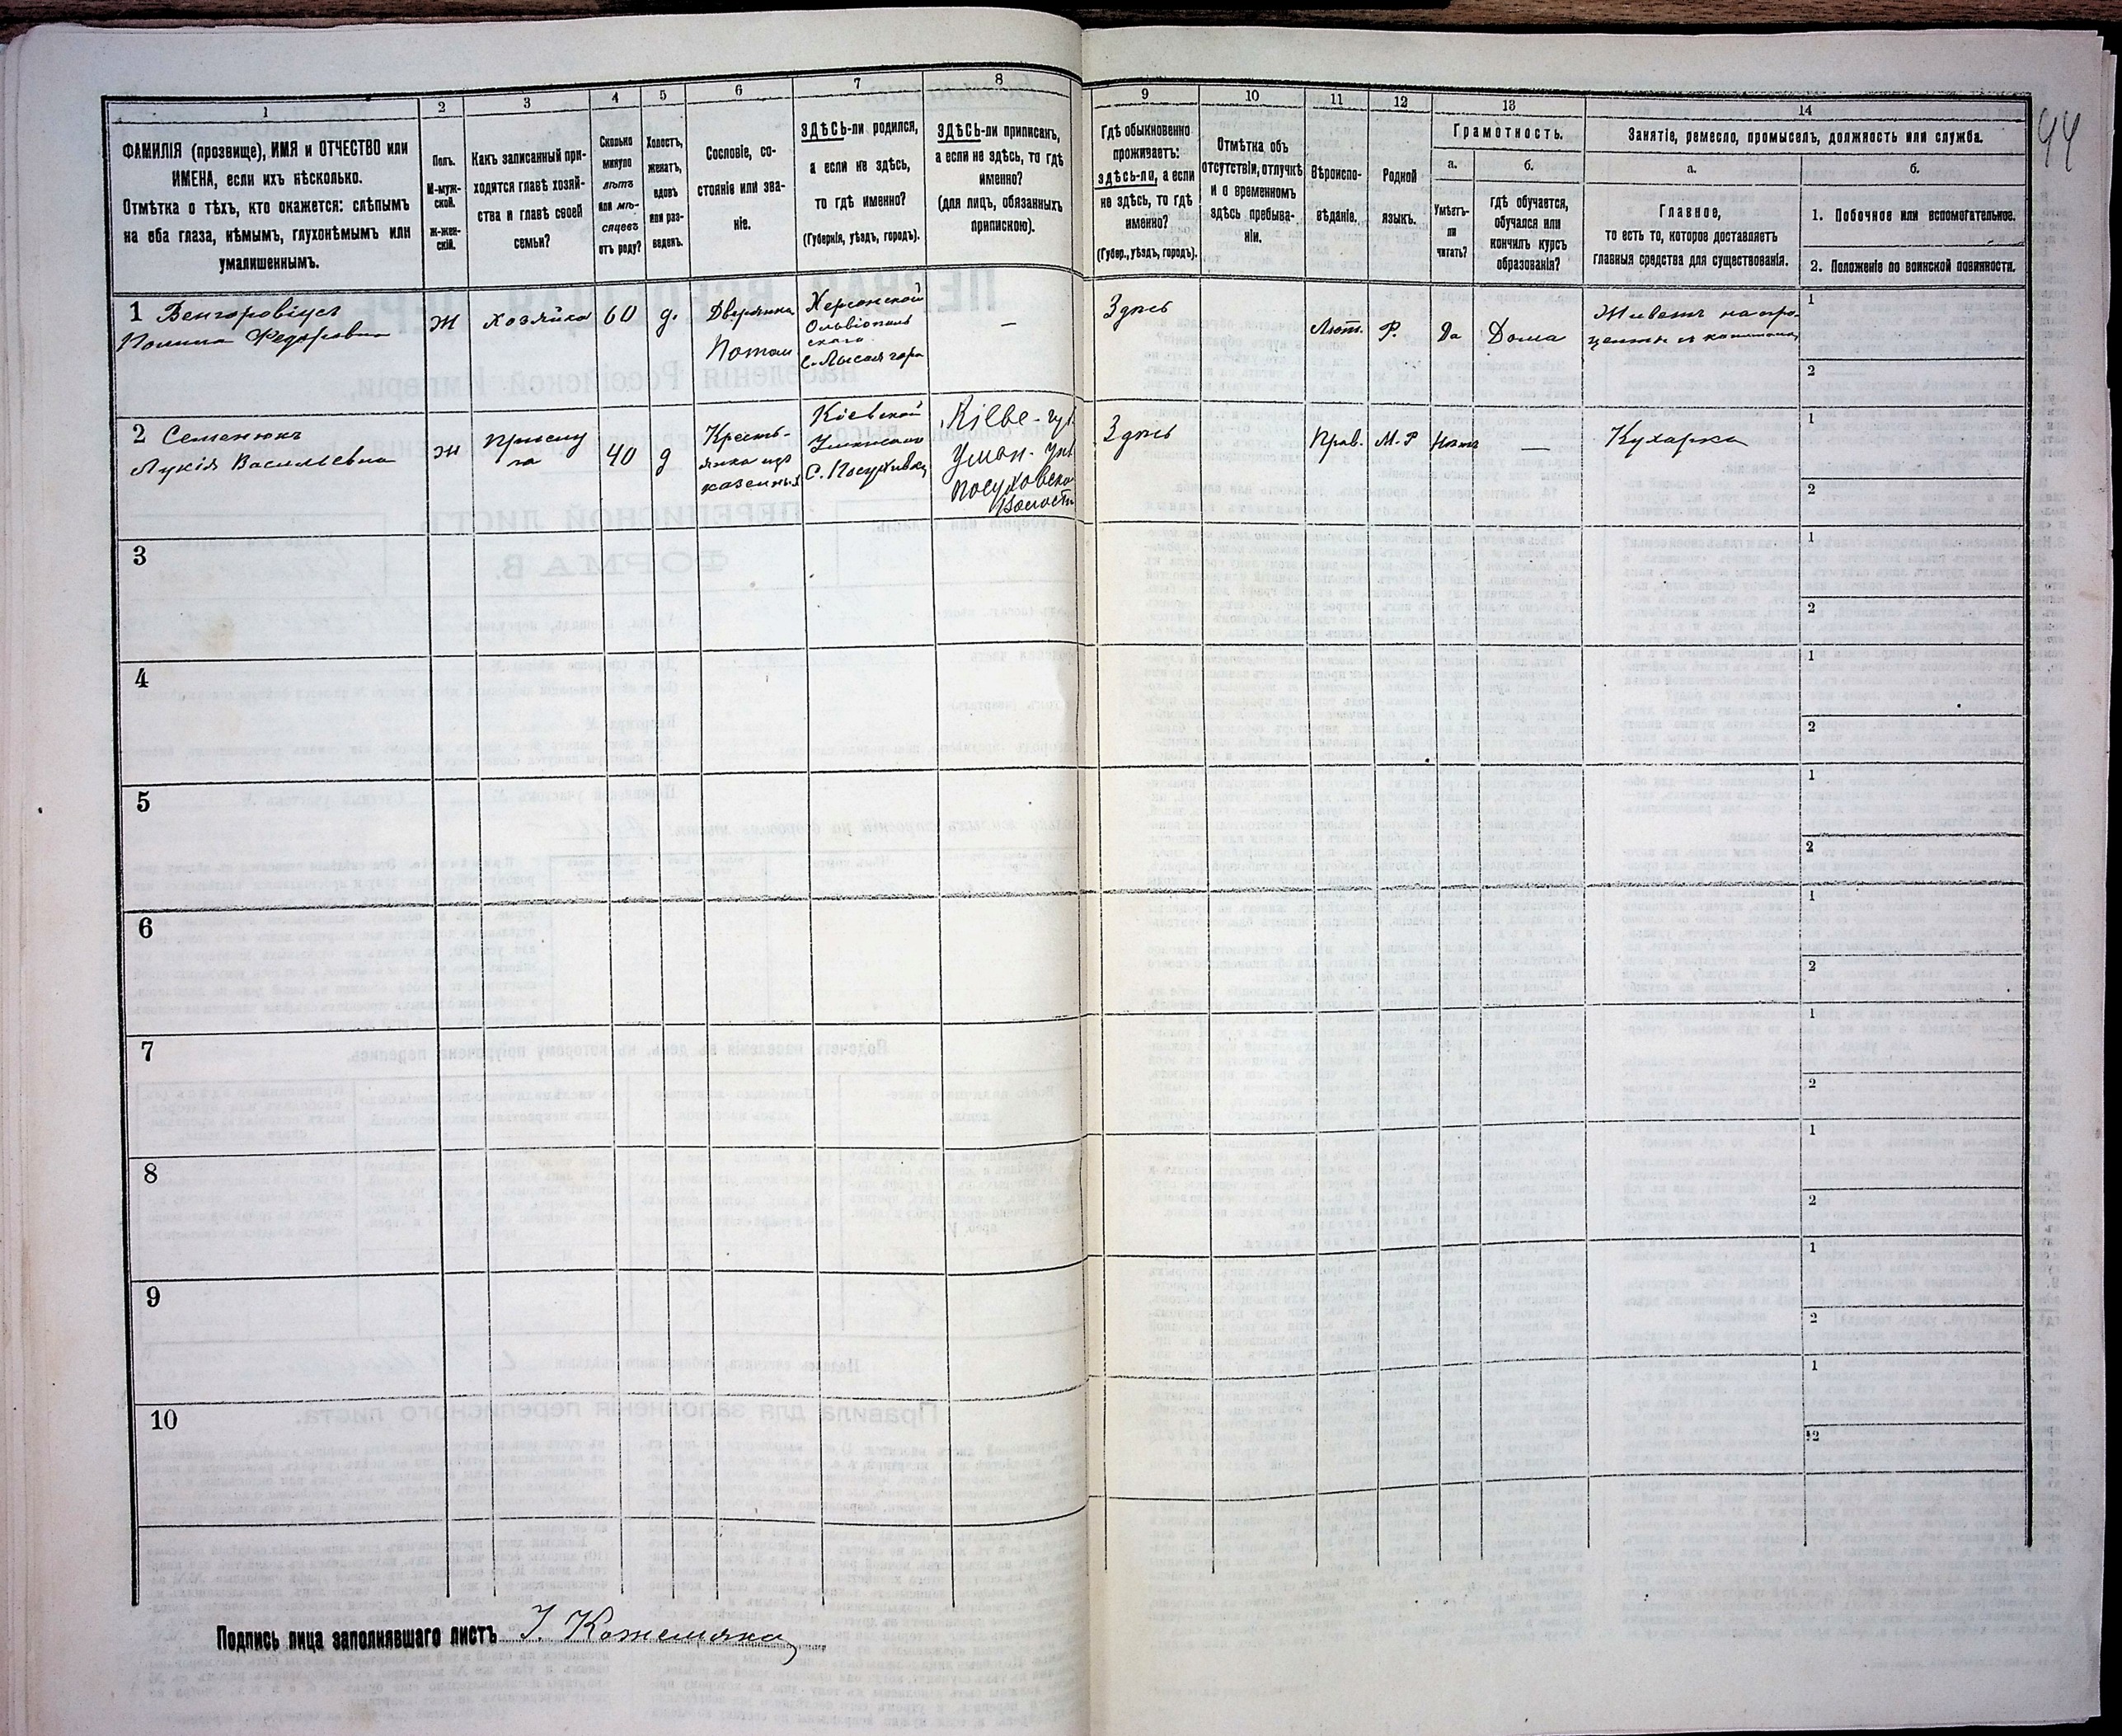 1 2 3 4 5 6 7 8 9 10 11 12 13 14
44
ФАМИЛІЯ (прозвище), ИМЯ и ОТЧЕСТВО или
ИМЕНА, если ихъ нѣсколько.
Отмѣтка о тѣхъ, кто окажется: слѣпымъ
на оба глаза, нѣмымъ, глухонѣмымъ или
умалишеннымъ.
Полъ.
М-муж-
ской.
Ж-жен-
скій.
Какъ записанный при-
ходится главѣ хозяй-
ства и главѣ своей
семьи?
Сколько
минуло
лѣтъ
или мѣ-
сяцевъ
отъ роду?
Холостъ,
женатъ,
вдовъ
или раз-
веденъ.
Сословіе, со-
стояніе или зва-
ніе.
ЗДѢСЬ-ли родился,
а если не здѣсь,
то гдѣ именно?
(Губернія, уѣздъ, городъ).
ЗДѢСЬ-ли приписанъ,
а если не здѣсь, то гдѣ
именно?
(для лицъ, обязанныхъ
припискою).
Гдѣ обыкновенно
проживаетъ:
здѣсь-ли, а если
не здѣсь, то гдѣ
именно?
(Губер., уѣздъ, городъ).
Отмѣтка объ
отсутствіи, отлучкѣ
и о временномъ
здѣсь пребыва-
ніи.
Вѣроиспо-
вѣданіе.
Родной
языкъ.
Грамотность.
а.
Умѣетъ-
ли
читать?
б.
гдѣ обучается,
обучался или
кончилъ курсъ
образованія?
Занятіе, ремесло, промыселъ, должность или служба.
а.
Главное,
то есть то, которое доставляетъ
главныя средства для существованія.
б.
1. Побочное или вспомогательное.
2. Положеніе по воинской повинности.
1 Венгоровіусъ
Федоровна
Ж
хозяйка
60
д.
Дворянка
Потом
Херсонской
Ольвіополь
скаго
С. Лысая гора
—
Здѣсь
Лют.
Р.
Да
Дома
Живетъ на про-
центы съ капитала
1
2
2 Семенюкъ
Лукія Васильевна
Ж
Прислу
га
40
д
Кресть-
янка изъ
казенных
Кіевской
Уманскаго
С. Посуховка
Кіевс. губ.
Уман. уѣз
Посуховской
Волости
Здѣсь
Прав.
М.Р
Нѣтъ
—
Кухарка
1
2
3
1
2
4
1
2
5
1
2
6
1
2
7
1
2
8
1
2
9
1
2
10
1
2
Подпись лица заполнявшаго листъ І. Кожемяка